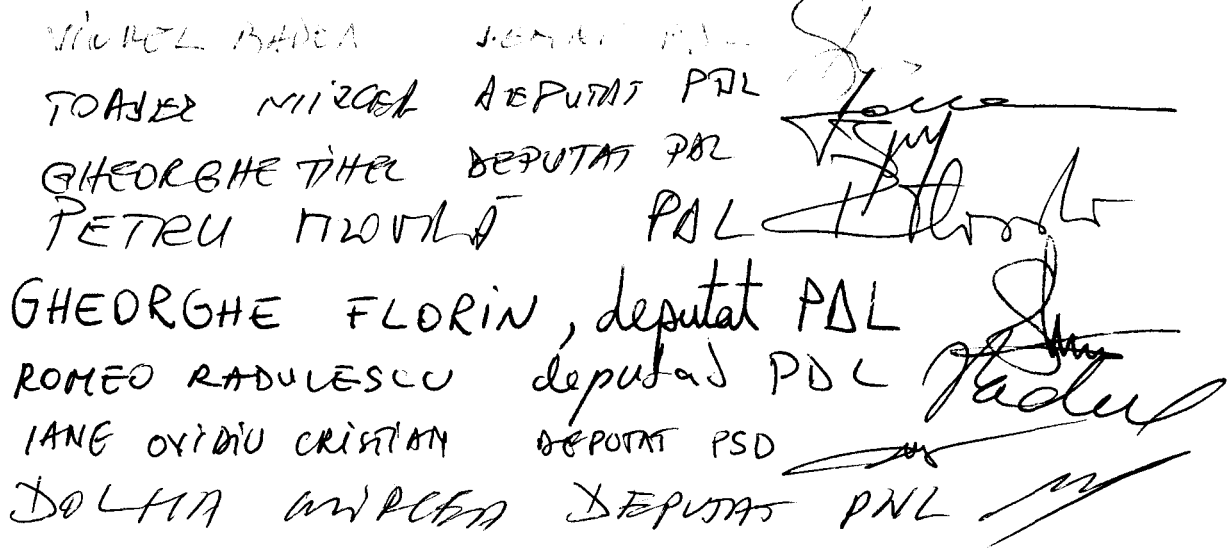 VIOREL BADEA SENAT PDL
TOADER MIRCEA DEPUTAT PDL
GHEORGHE TINEL DEPUTAT PDL
PETRU MOVILĂ PDL
GHEORGHE FLORIN, deputat PDL
ROMEO RADULESCU deputat PDL
IANE OVIDIU CRISTIAN DEPUTAT PSD
DOLHA MIRCEA DEPUTAT PNL